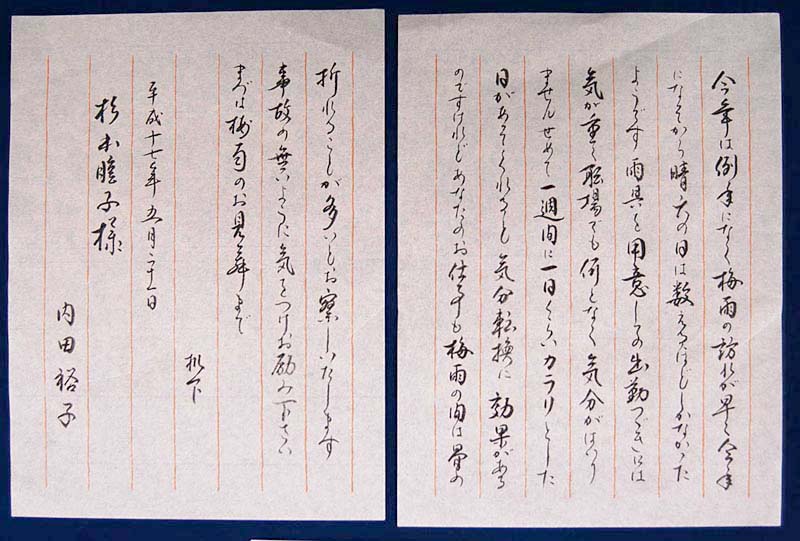 今年は例年になく梅雨の訪れが早く今年
になってから晴天の日は数えるほどしかなかった
ようです 雨具を用意しての出勤つづきには
気が重く職場でも何となく気分がはいり
ません せめて一週間に一日くらいカラリとした
日があってくれると気分転換に効果がある
のですけれど あなたのお仕事も梅雨の内は骨の
折れることが多いとお察しいたします
事故の無いように気をつけお励み下さい
まづは梅雨のお見舞まで
机下
平成十七年五月二十一日
杉本瞳子様
内田裕子